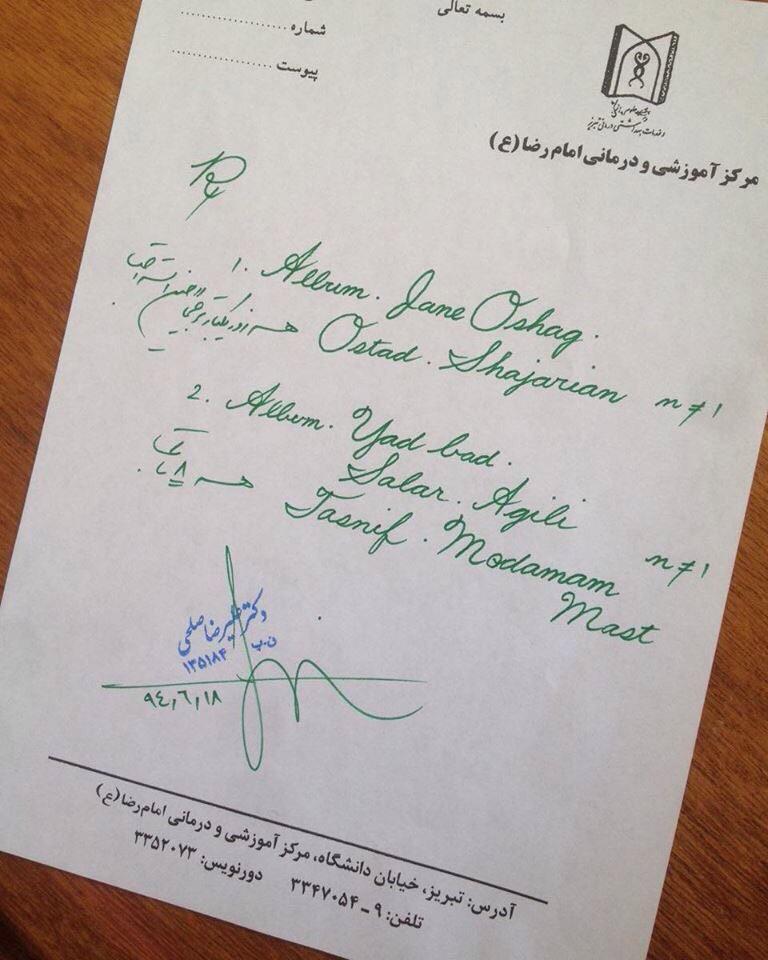 بسمه تعالی
شماره ....................
پیوست ..................
و خدمات بهداشتی درمانی تبریز
مرکز آموزشی و درمانی امام رضا (ع)
Rx
1. Album. Jane Oshag.
Ostad. Shajarian n≠1
هر روز یکبار ترجیحاً
2. Album. Yad bad.
Salar. Agili
Tasnif. Modamam n≠1
Mast
هر ۸
دکتر علیرضا صلحی
ن.پ ۱۳۵۱۸۴
۹٤,٦,۱۸
آدرس: تبریز، خیابان دانشگاه، مرکز آموزشی و درمانی امام رضا (ع)
تلفن: ۹ - ۳۳۴۷۰۵۴ دورنویس: ۳۳۵۲۰۷۳